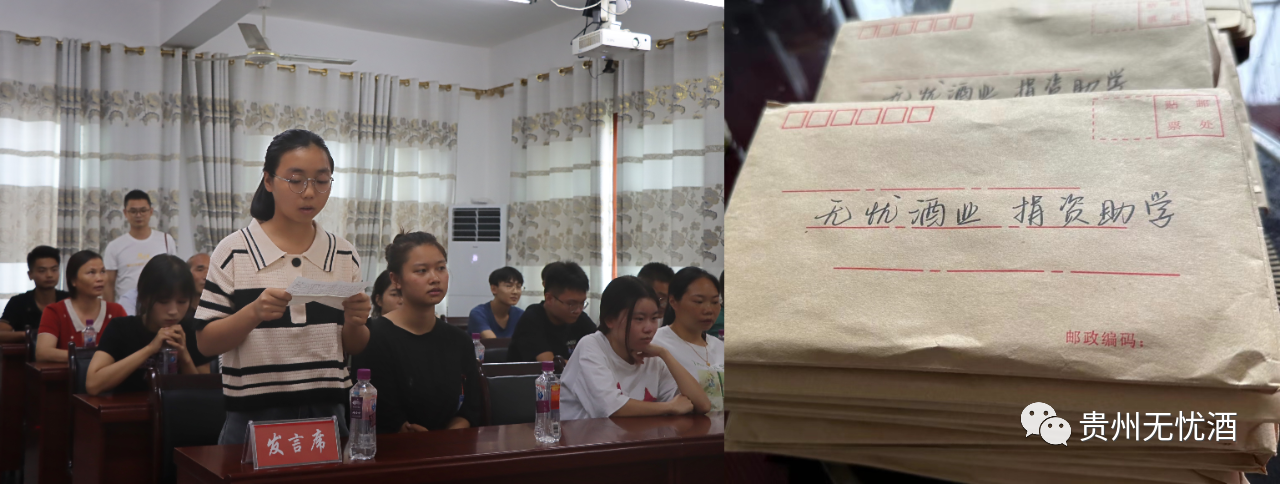 发言席
无忧酒业 捐资助学
贴 邮
票 处
无忧酒业 捐资助学
邮政编码：
贵州无忧酒